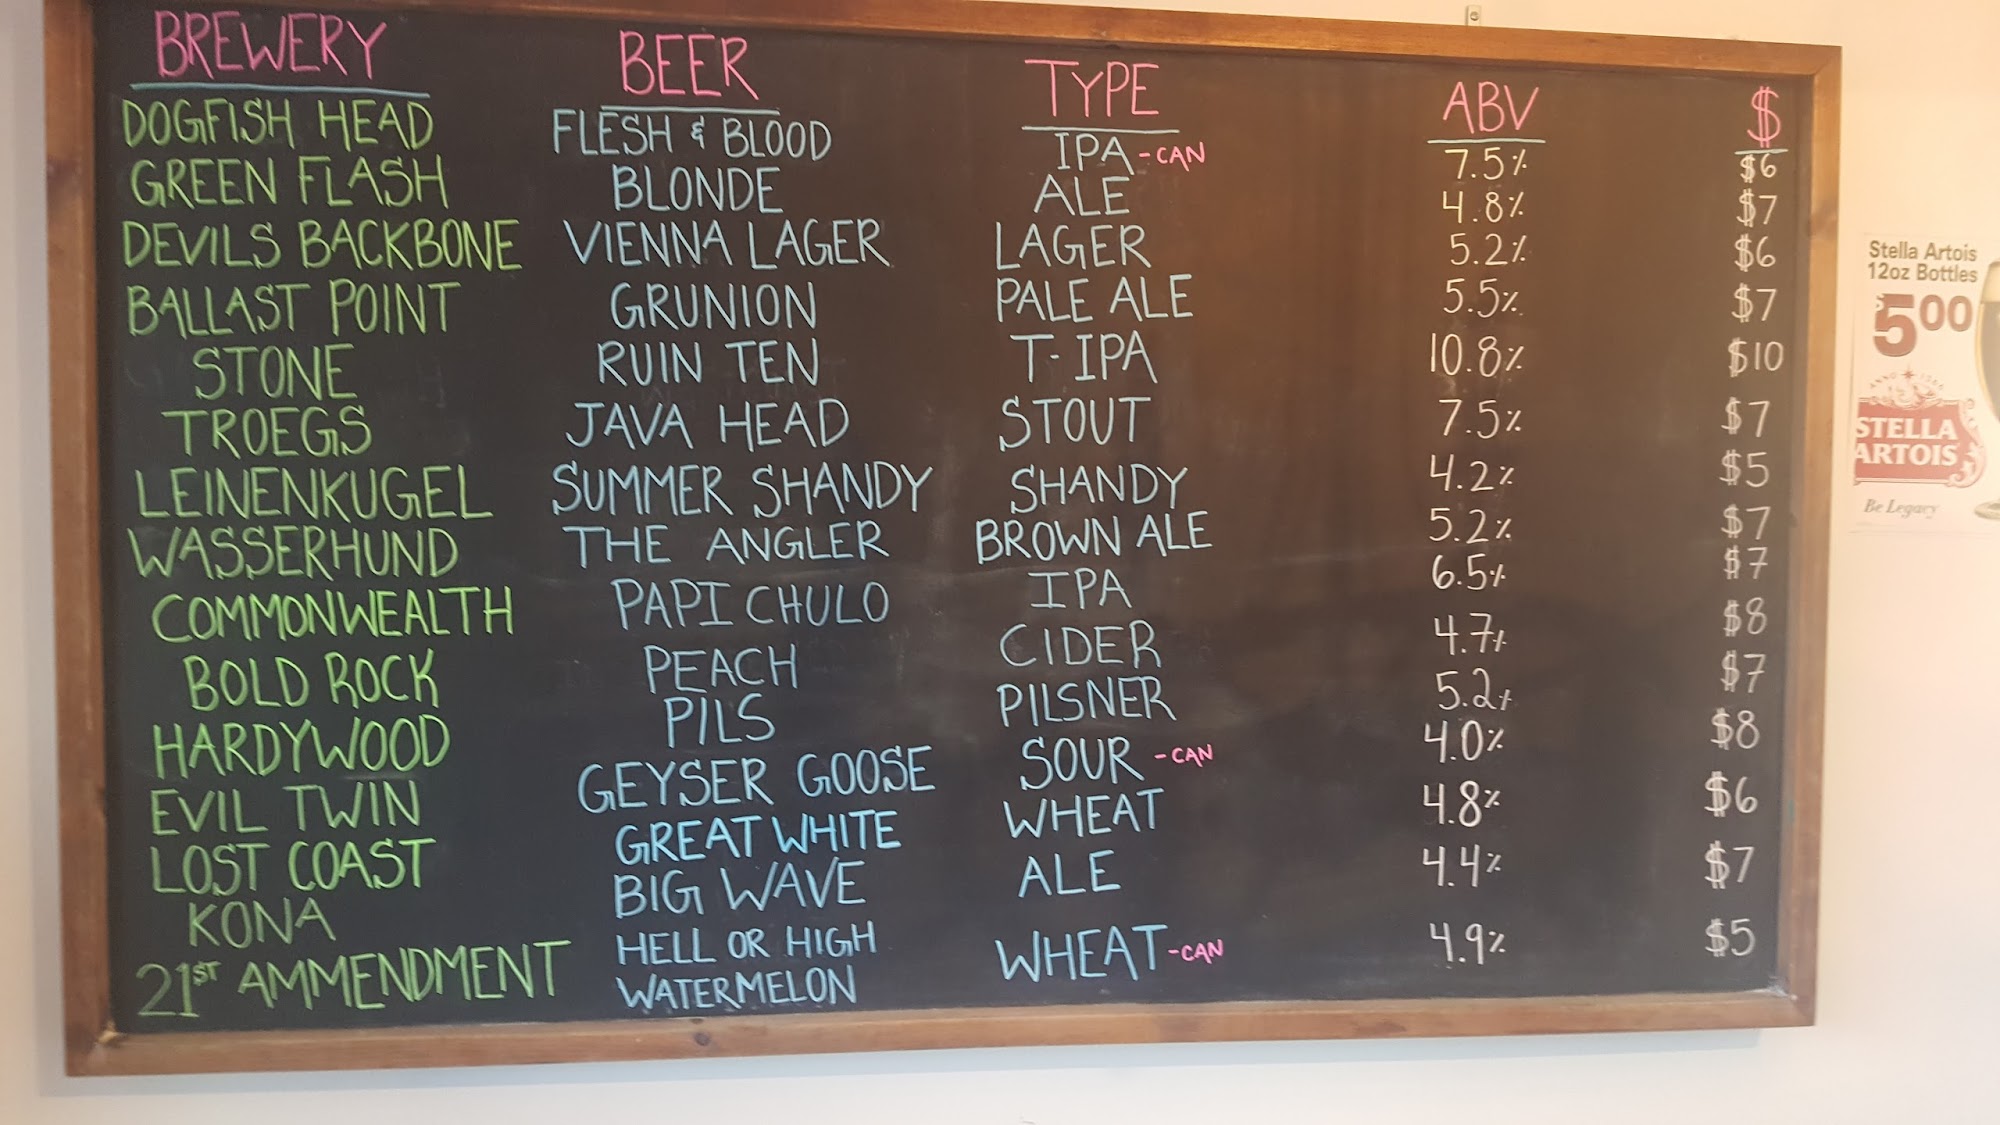 BREWERY BEER TYPE ABV $
DOGFISH HEAD FLESH & BLOOD IPA -CAN 7.5% $6
GREEN FLASH BLONDE ALE 4.8% $7
DEVILS BACKBONE VIENNA LAGER LAGER 5.2% $6
BALLAST POINT GRUNION PALE ALE 5.5% $7
STONE RUIN TEN T-IPA 10.8% $10
TROEGS JAVA HEAD STOUT 7.5% $7
LEINENKUGEL SUMMER SHANDY SHANDY 4.2% $5
WASSERHUND THE ANGLER BROWN ALE 5.2% $7
COMMONWEALTH PAPI CHULO IPA 6.5% $7
BOLD ROCK PEACH CIDER 4.7% $8
HARDYWOOD PILS PILSNER 5.2% $7
EVIL TWIN GEYSER GOOSE SOUR -CAN 4.0% $8
LOST COAST GREAT WHITE WHEAT 4.8% $6
KONA BIG WAVE ALE 4.4% $7
21ST AMMENDMENT HELL OR HIGH WHEAT -CAN 4.9% $5
WATERMELON
Stella Artois
12oz Bottles
$5.00
ANNO 1366
STELLA
ARTOIS
Be Legacy